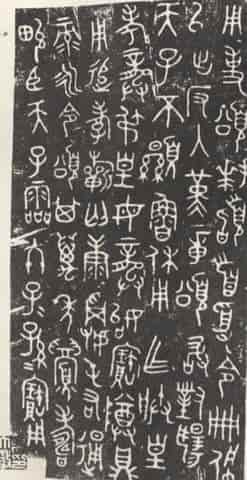 用事頌拜𩒨首受令冊佩
以出反入堇章頌敢對揚
天子不顯魯休用乍朕皇
考龏弔皇母龏始寶尊鼎
用追孝匄康屯右通
彔永令頌其萬年眉壽
畯臣天子霝冬子孫寶用